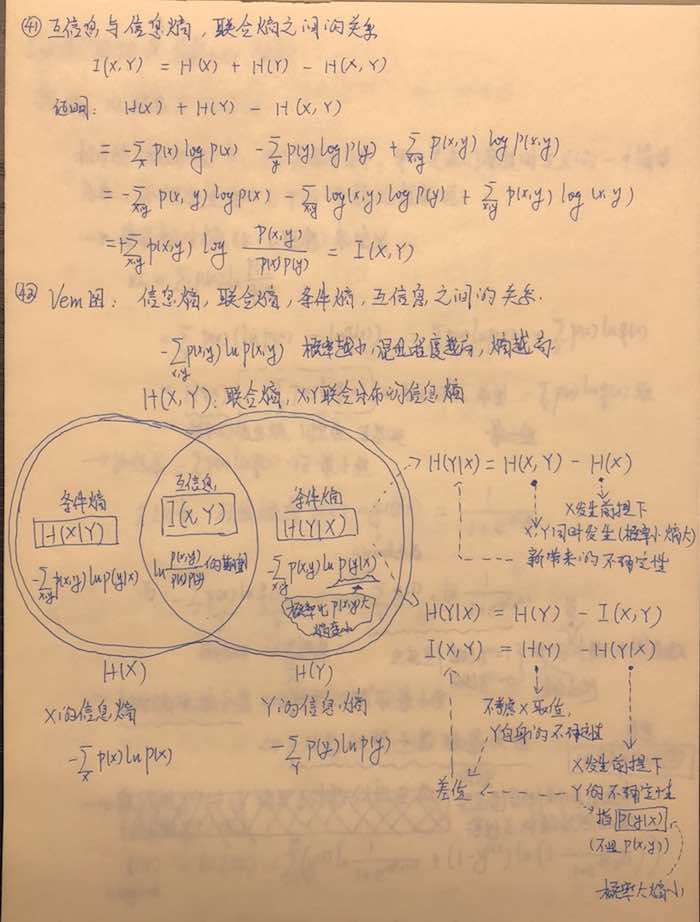 ㊶ 互信息与信息熵，联合熵之间的关系
I(X,Y) = H(X) + H(Y) - H(X,Y)
证明： H(X) + H(Y) - H(X,Y)
= -∑x p(x) log p(x) -∑y p(y) log p(y) + ∑x,y p(x,y) log p(x,y)
= -∑x,y p(x,y) log p(x) - ∑x,y log(x,y) log p(y) + ∑x,y p(x,y) log(x,y)
= +∑x,y p(x,y) log p(x,y)/p(x)p(y) = I(X,Y)
㊷ Venn图： 信息熵，联合熵，条件熵，互信息之间的关系.
-∑x,y p(x,y) ln p(x,y) 概率越小，混乱程度越高，熵越高.
H(X,Y)：联合熵，X,Y联合分布的信息熵
条件熵
H(X|Y)
-∑x,y p(x,y) ln p(y|x)
互信息
I(X,Y)
ln p(x,y)/p(x)p(y) 的期望
条件熵
H(Y|X)
-∑x,y p(x,y) ln p(y|x)
概率比p(x,y)大
熵变小
H(X)
H(Y)
X的信息熵
-∑x p(x) ln p(x)
Y的信息熵
-∑Y p(y) ln p(y)
H(Y|X) = H(X,Y) - H(X)
X发生前提下
X,Y同时发生(概率小熵大)
新带来的不确定性
H(Y|X) = H(Y) - I(X,Y)
I(X,Y) = H(Y) - H(Y|X)
不考虑X取值，
Y自身的不确定性
X发生前提下
差值
Y的不确定性
指p(y|x)
(不是p(x,y))
概率大熵小